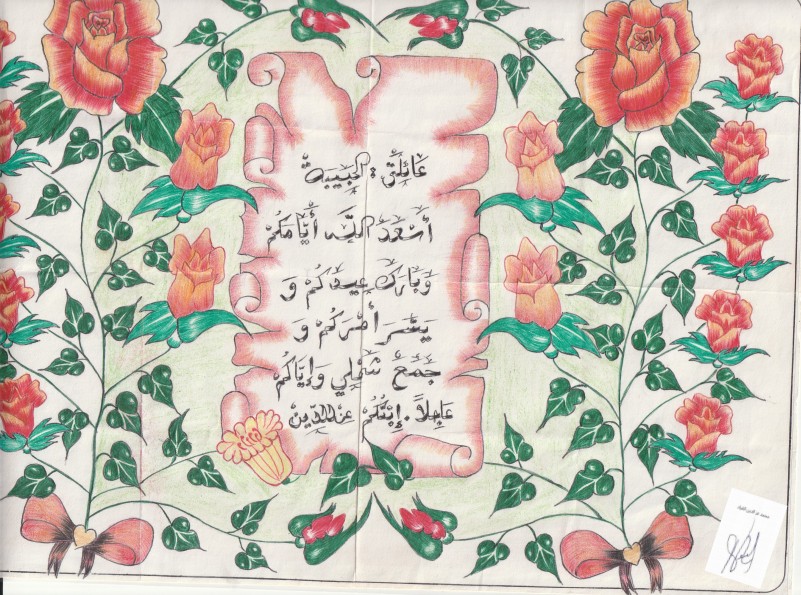 عَائِلَتِي الحَبِيبَة
أَسْعَدَ اللهُ أَيَّامَكُمْ
وَبَارَكَ عِيدَكُمْ وَ
يَسَّرَ أَمْرَكُمْ وَ
جَمَعَ شَمْلِي وَإِيَّاكُمْ
عَاجِلاً . إِبْنُكُمْ عزالدِّينْ
محمد عز الدين